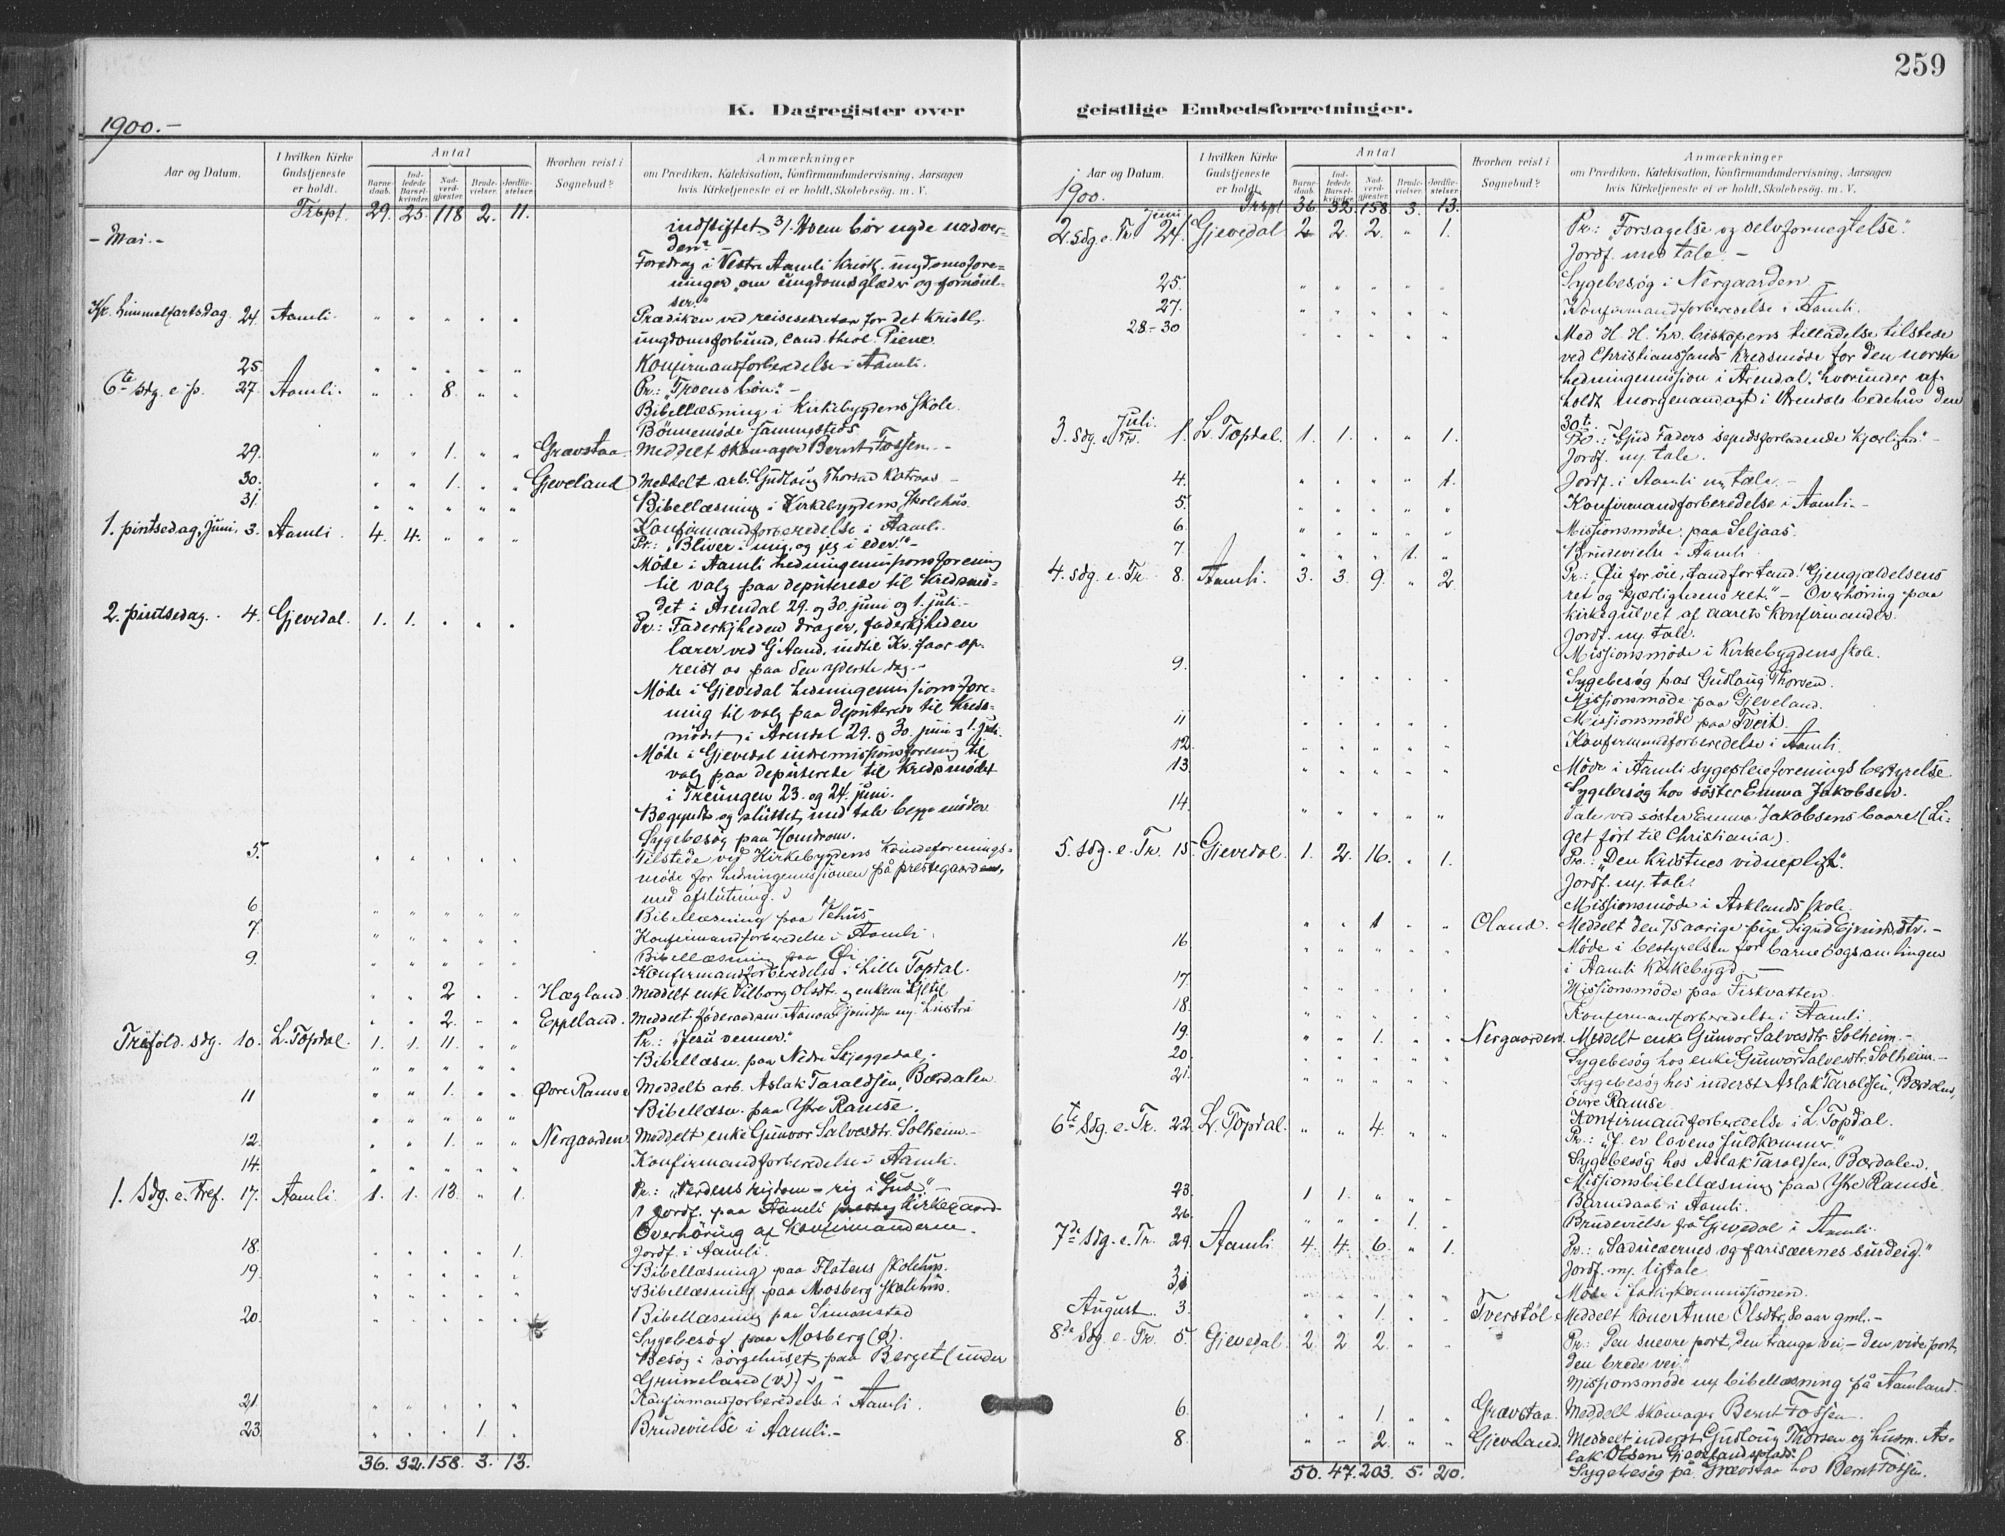 259
K. Dagregister over
geistlige Embedsforretninger.
1900.-
Aar og Datum.
I hvilken Kirke Gudstjeneste er holdt.
Antal
Barnedaab.
Indledede Barselkvinder.
Nadverdgjester.
Brudevielser.
Jordfæstelser.
Hvorhen reist i Sognebud?
Anmærkninger
om Prædiken, Katekisation, Konfirmandundervisning, Aarsagen
hvis Kirketjeneste ei er holdt, Skolebesøg. m. V.
Trspt. 29. 25. 118 2. 11.
indstiftet. 3/ Hvem bør nyde nadver-
- Mai. - den?
Foredrag i Vestre Aamli kristl. ungdomsfore-
ninger „om ungdomsglæder og fornøiel-
ser."
Kr. himmelfartsdag. 24. Aamli. " " " " " Prædiken ved reisesekretær for det kristl.
ungdomsforbund, cand. theol. Piene.
25. " " " " " Konfirmandforberedelse i Aamli.
6te sdg. e. p. 27. Aamli. " " 8. " " Pr.: „Troens bøn." -
Bibellæsning i Kirkebygdens skole.
Bønnemøde sammesteds.
29. " " 1. " " Grævstaa. Meddelt skomager Bernt Fossen. -
30. " " 1. " " Gjeveland Meddelt arb. Gudlaug Thorsen
31. " " " " " Bibellæsning i Kirkebygdens skolehus.
Konfirmandforberedelse i Aamli.
1. pintsedag, Juni. 3. Aamli. 4. 4. " " " Pr.: „Bliver i mig, og jeg i eder." -
Møde i Aamli hedningemissionsforening
til valg paa deputerede til kredsmø-
det i Arendal 29. og 30. juni og 1. juli. -
2. pintsedag. 4. Gjevedal. 1. 1. " " " Pr.: Faderkjheden drager, faderkjheden
lærer ved G Aand, indtil Kr. faar op-
reist os paa den yderste dag. -
Møde i Gjevedal hedningemissionsfore-
ning til valg paa deputerede til kreds-
mødet i Arendal 29. og 30. juni og 1. juli.
Møde i Gjevedal indremissionsforening til
valg paa deputerede til kredsmødet
i Treungen 23. og 24. juni.
Begyndt og sluttet med tale begge møder.
Sygebesøg paa Homdrom.
5. " " " " " Tilstede ved Kirkebygdens kvindeforenings-
møde for hedningemissionen på prestegaarden,
med afslutning.
6. " " " " " Bibellæsning paa Vehus.
7. " " " " " Konfirmandforberedelse i Aamli.
Bibellæsning paa Øi.
9. " " " " " Konfirmandforberedelse i Lille Topdal.
" " 2 " " Hægland. Meddelt enke Vilborg Olsdt. og enkem.
" " 2. " " Eppeland. Meddelt føderaadsm.
Trefold. sdg. 10. L. Topdal. 1. 1. 11. " " Pr.: „Jesu venner."
" " " " " Bibellæsn. paa Nedre Skjeggedal.
11 " " 1. " " Øvre Ramse Meddelt arb. Aslak Taraldsen, Bærdalen.
" " " " " Bibellæsn. paa Ytre Ramse.
12. " " 1. " " Nergaarden Meddelt enke Gunvor Salvesdtr. Solheim. -
14. " " " " " Konfirmandforberedelse i Aamli.
1. sdg. e. Tref. 17. Aamli. 1. 1. 13 " 1. Pr.: „Verdens rigdom - rig i Gud." -
1 Jordf. paa Aamli Kirkegaard
Overhøring af konfirmanderne. -
18. " " " " 1. Jordf. i Aamli.
19. " " " " " Bibellæsning paa Flatens skolehus.
" " " " " Bibellæsning paa Mosberg skolehus.
20. " " " " " Bibellæsning paa Simonstad
Sygebesøg paa Mosberg (ø).
Besøg i sørgehuset paa Berget (under
Grimeland (v)). -
21. " " " " " Konfirmandforberedelse i Aamli.
23. " " " 1 " Brudevielse i Aamli. -
36. 32. 158. 3. 13.
Aar og Datum.
I hvilken Kirke Gudstjeneste er holdt.
Antal
Barnedaab.
Indledede Barselkvinder.
Nadverdgjester.
Brudevielser.
Jordfæstelser.
Hvorhen reist i Sognebud?
Anmærkninger
om Prædiken, Katekisation, Konfirmandundervisning, Aarsagen
hvis Kirketjeneste ei er holdt, Skolebesøg. m. V.
1900. Trspt. 36. 32. 158. 3. 13.
Juni
2. sdg. e. Tr. 24. Gjevedal 2 2. 2. " 1. Pr.: „Forsagelse og selvfornegtelse."
Jordf. med tale. -
25. " " " " " Sygebesøg i Nergaarden
27. " " " " " Konfirmandforberedelse i Aamli.
28-30 " " " " " Med H. H. hr. biskopens tilladelse tilstede
ved Christianssands kredsmøde for den norske
hedningemission i Arendal, hvorunder af-
holdt morgenandagt i Arendals bedehus den
30t.
Juli.
3. sdg. e. Tr. 1. L. Topdal. 1. 1. " " 1. Pr.: „Gud Faders syndsforladende kjærlighed." -
Jordf. m. tale.
4. " " " " 1. Jordf. i Aamli m. tale. -
5. " " " " " Konfirmandforberedelse i Aamli. -
6. " " " " " Missionsmøde paa Seljaas.
7. " " " 1. " Brudevielse i Aamli
4. sdg. e. Tr. 8. Aamli. 3. 3. 9. " 2. Pr.: „Øie for øie, tand for tand! Gjengjældelsens
ret og kjærlighedens ret." - Overhøring paa
kirkegulvet af aarets konfirmander.
Jordf. m. tale.
Missionsmøde i Kirkebygdens skole.
9. " " " " " Sygebesøg hos Gudlaug Thorsen.
Missionsmøde paa Gjeveland.
11 " " " " " Missionsmøde paa Tveit.
12. " " " " " Konfirmandforberedelse i Aamli.
13. " " " " " Møde i Aamli sygepleieforenings bestyrelse
Sygebesøg hos søster Emma Jakobsen.
14. " " " " " Tale ved søster Emma Jakobsens baare (Li-
get ført til Christiania).
5. sdg. e. Tr. 15. Gjevedal. 1. 2. 16. " 1. Pr.: „Den kristnes vidnepligt."
Jordf. m. tale.
Missionsmøde i Asklands skole.
" " 1 " " Oland. Meddelt den 75 aarige pige Sigrid Ejvindsdtr. -
16 " " " " " Møde i bestyrelsen for barnebogsamlingen
i Aamli kirkebygd -
17. " " " " " Missionsmøde paa Fiskvatten.
18. " " " " " Konfirmandforberedelse i Aamli.
19. " " 1. " " Nergaarden. Meddelt enke Gunvor Salvesdtr. Solheim. -
20. " " " " " Sygebesøg hos enke Gunvor Salvesdtr. Solheim. -
21. " " " " " Sygebesøg hos inderst Aslak Taraldsen, Bærdalen,
øvre Ramse
Konfirmandforberedelse i L. Topdal.
6te sdg. e. Tr. 22. L. Topdal. " " 4. " " Pr.: „J. er lovens fuldkommer"
Sygebesøg hos Aslak Taraldsen, Bærdalen.
Missionsbibellæsning paa Ytre Ramse.
23. 1 1. " " " Barnedaab i Aamli.
26. " " " 1. " Brudevielse fra Gjevedal i Aamli.
7de sdg. e. Tr. 29. Aamli. 4. 4. 6. " 1. Pr.: „Saducæernes og farisæernes surdeig."
Jordf. m. ligtale
31 " " " " " Møde i fattigkommissionen.
August. 3. " " 1. " " Tverstøl. Meddelt kone Anne Olsdtr, 80 aar gml. -
8de sdg. e. Tr. 5. Gjevedal. 2. 2 2. " " Pr.: Den snevre port, den trange vei, - den vide port,
den brede vei."
Missionsmøde m. bibellæsning på Aamland.
6. " " 1. " " Grævstaa. Meddelt skomager Bernt Fossen.
8. " " 2. " " Gjeveland. Meddelt inderst Gudlaug Thorsen og husm. As-
lak Olsen Gjevelandsplads.
Sygebesøg på Grævstaa hos Bernt Fossen.
50. 47. 203. 5. 20.